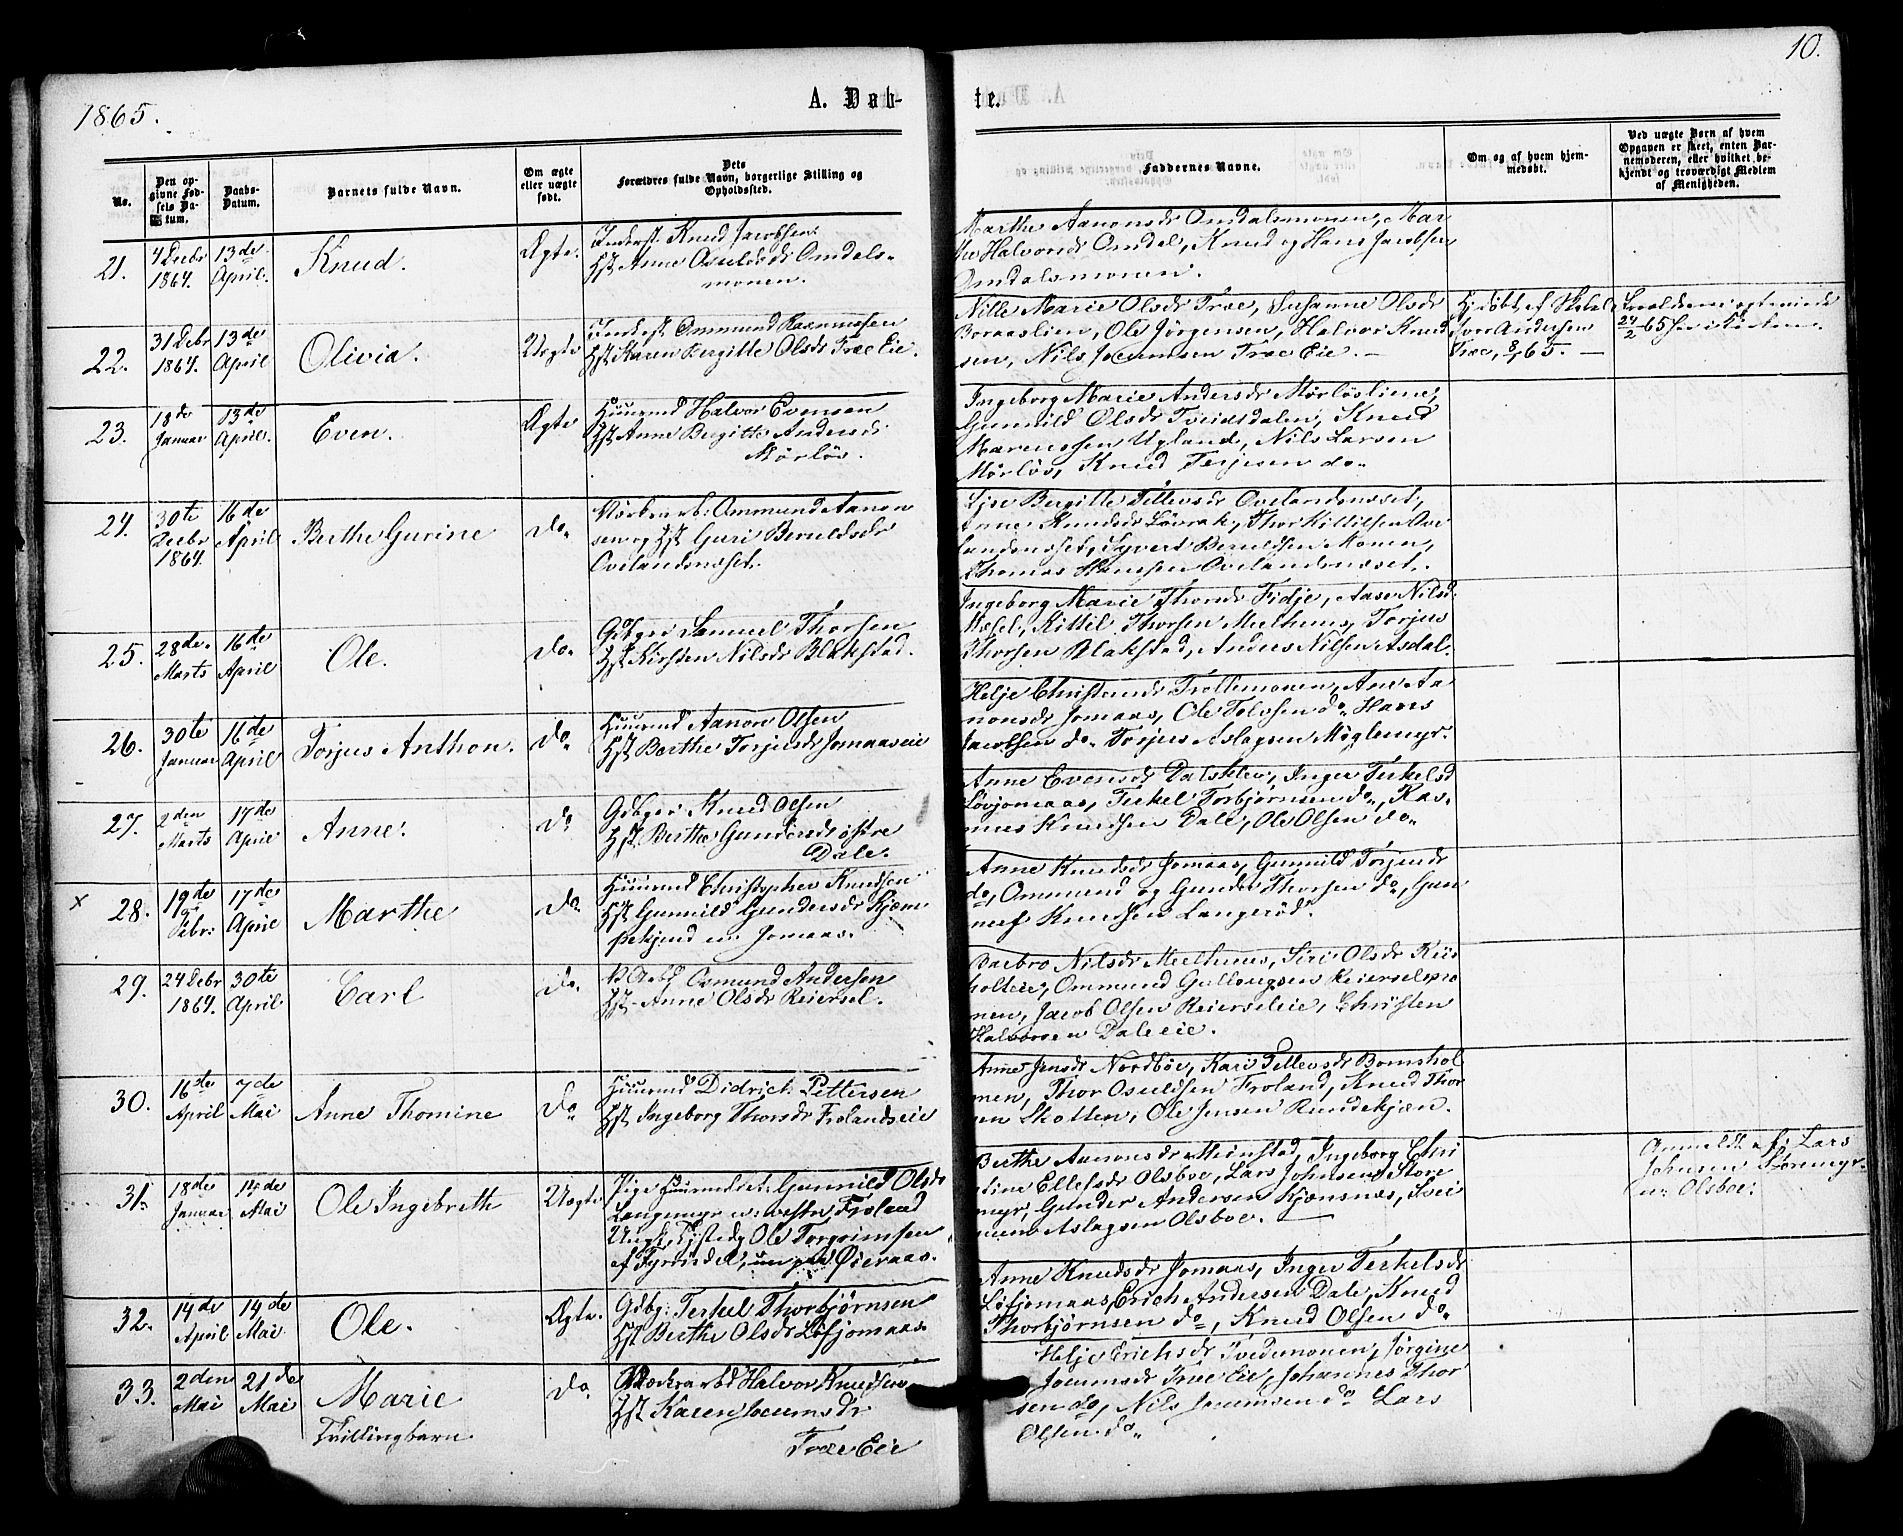 1865.
A. Døb-
te.
10.
No.
Den op-
givne Fød-
sels Da-
tum.
Daabs-
Datum.
Barnets fulde Navn.
Om ægte
eller uægte
født.
Dets
Forældres fulde Navn, borgerlige Stilling og
Opholdssted.
Faddernes Navne.
Om og af hvem hjem-
medøbt.
Ved uægte Børn af hvem
Opgaven er skeet, enten Bar-
nemoderen, eller hvilket be-
kjendt og troværdigt Medlem
af Menigheden.
21.
4 Decbr
1864.
13de
April.
Knud.
Ægte.
Inderst. Knud Jacobsen.
Hst Anne Osuldsdr Omdals-
monen.
Marthe Aanonsdr Omdalsmonen, Mar
the Halvorsdr Omdal, Knud og Hans Jacobsen
Omdalsmonen.
22.
31 Decbr
1864.
13de
April
Olivia.
Uægte
Inderst. Ommund Rasmussen
Hst Karen Bergitte Olsdr Træ Eie.
Nille Marie Olsdr Træ, Susanne Olsdr
Boraaslien, Ole Jørgensen, Halvor Knud
sen, Nils Jocumsen Træ Eie. —
Hj. døbt af Skolel
Iver Andersen
Træ, 8/1 65. —
Forældrene
24/2 65 her i Kirken.
23.
18de
Januar
13de
April.
Even.
Ægte
Huusmd Halvor Evensen
Hst Anne Bergitte Andersdr
Mørløs.
Ingeborg Marie Andersdr Mørløsliene,
Gunnild Olsdr Tveitsdalen, Knud
Marcussen Ugland, Nils Larsen
Mørløs, Knud Terjesen do.
24.
30te
Decbr
1864.
16de
April
Berthe Gurine
do.
Værkarb: Ommund Aanon
sen og Hst Guri Beruldsdr
Ovelandonsset.
Bergitte Tellevsdr Ovelandonsset,
Anne Knudsdr Løvrak, Thor Kittilsen Ove
landonsset, Syvert Beruldsen Monen,
Thomas Hanssen Ovelandonsset.
25.
28de
Marts
16de
April
Ole.
do.
Gdbger Samuel Thorsen
Hst Kirsten Nilsdr Blakstad.
Ingeborg Marie Thorsdr Fidje, Aase Nilsd.
Kittil Thorsen Messel, Torjus
Thorsen Blakstad, Anders Nilsen Asdal.
26.
30te
Januar
16de
April
Torjus Anthon.
do.
Huusmd Aanon Olsen
Hst Berthe Torjusdr Jomaaseie
Helje Christensdr Trollemonen, Ane Aa
nonsdr Jomaas, Ole Tolvsen do Hans
Jacobsen do. Torjus Aslagsen Møglemyr.
27.
2den
Marts
17de
April
Anne.
do
Gdbger Knud Olsen
Hst Berthe Gundersdr østre
Dale.
Anne Evensdr Dalskley, Inger Terkelsd
Løvjomaas, Terkel Torbjørnsen do, Ras-
mus Knudsen Dale, Ole Olsen do.
x
28.
19de
Febr:
17de
April
Marthe
do
Huusmd Christopher Knudsen
Hst Gunnild Gundersdr Kjæm
pekjend u. Jomaas.
Anne Knudsdr Jomaas, Gunnild Torjusdr
do, Ommund og Gunder Thorsen do, Gun
neuf Knudsen Langerød.
29.
24 Debr
1864.
30te
April
Carl
do.
Osmund Andersen
Hst. Anne Olsdr Reiersel.
Barbro Nilsdr Messel, Siri Olsdr Riis
holteie, Ommund Gullougsen Reierselmo
nen, Jacob Olsen Reierseleie, Christen
Halvorsen Daleeie.
30.
16de
April
7de
Mai
Anne Thomine
do
Huusmd Didrich Pettersen
Hst Ingeborg Thorsdr Frolandseie
Anne Jensdr Nordbøe, Kari Tellevsdr Bomshol
men, Thor Osuldsen Froland, Knud Thor
sen Skotten, Ole Jensen Rundekjæn.
31.
18de
Januar
14de
Mai
Ole Ingebreth
Uægte
Pige Huusmdet: Gunnild Olsdr
Langemyr u: vestre Froland
Ungk. Tjstedg Ole Torgrimsen
af Fyresdal, nu paa Øieraas.
Berthe Aanonsdr Mernstad, Ingeborg Chri
stine Ellefsdr Olsboe, Lars Johnsen Store
myr, Gunder Andersen Kjønsnæs, Svei
nung Aslagsen Olsboe.
Anmeldt af Lars
Johnsen Storemyr
u: Olsboe.
32.
14de
April
14de
Mai
Ole.
Ægte.
Gdbg: Terkel Thorbjørnsen
Hst Berthe Olsdr Løfjomaas.
Anne Knudsdr Jomaas, Inger Terkelsdr
Løfjomaas, Erich Andersen Dale, Knud
Thorbjørnsen do, Knud Olsen do
33.
2den
Mai
21de
Mai
Marie
Tvillingbarn.
do
Værksarbd Halvor Knudsen
Hst Karen Jocumsdr
Træ Eie
Helje Erichsdr Tvedemonen, Jørgine
Jocumsdr Træ Eie, Johannes Thor
sen do, Nils Jocumsen do Lars
Olsen do